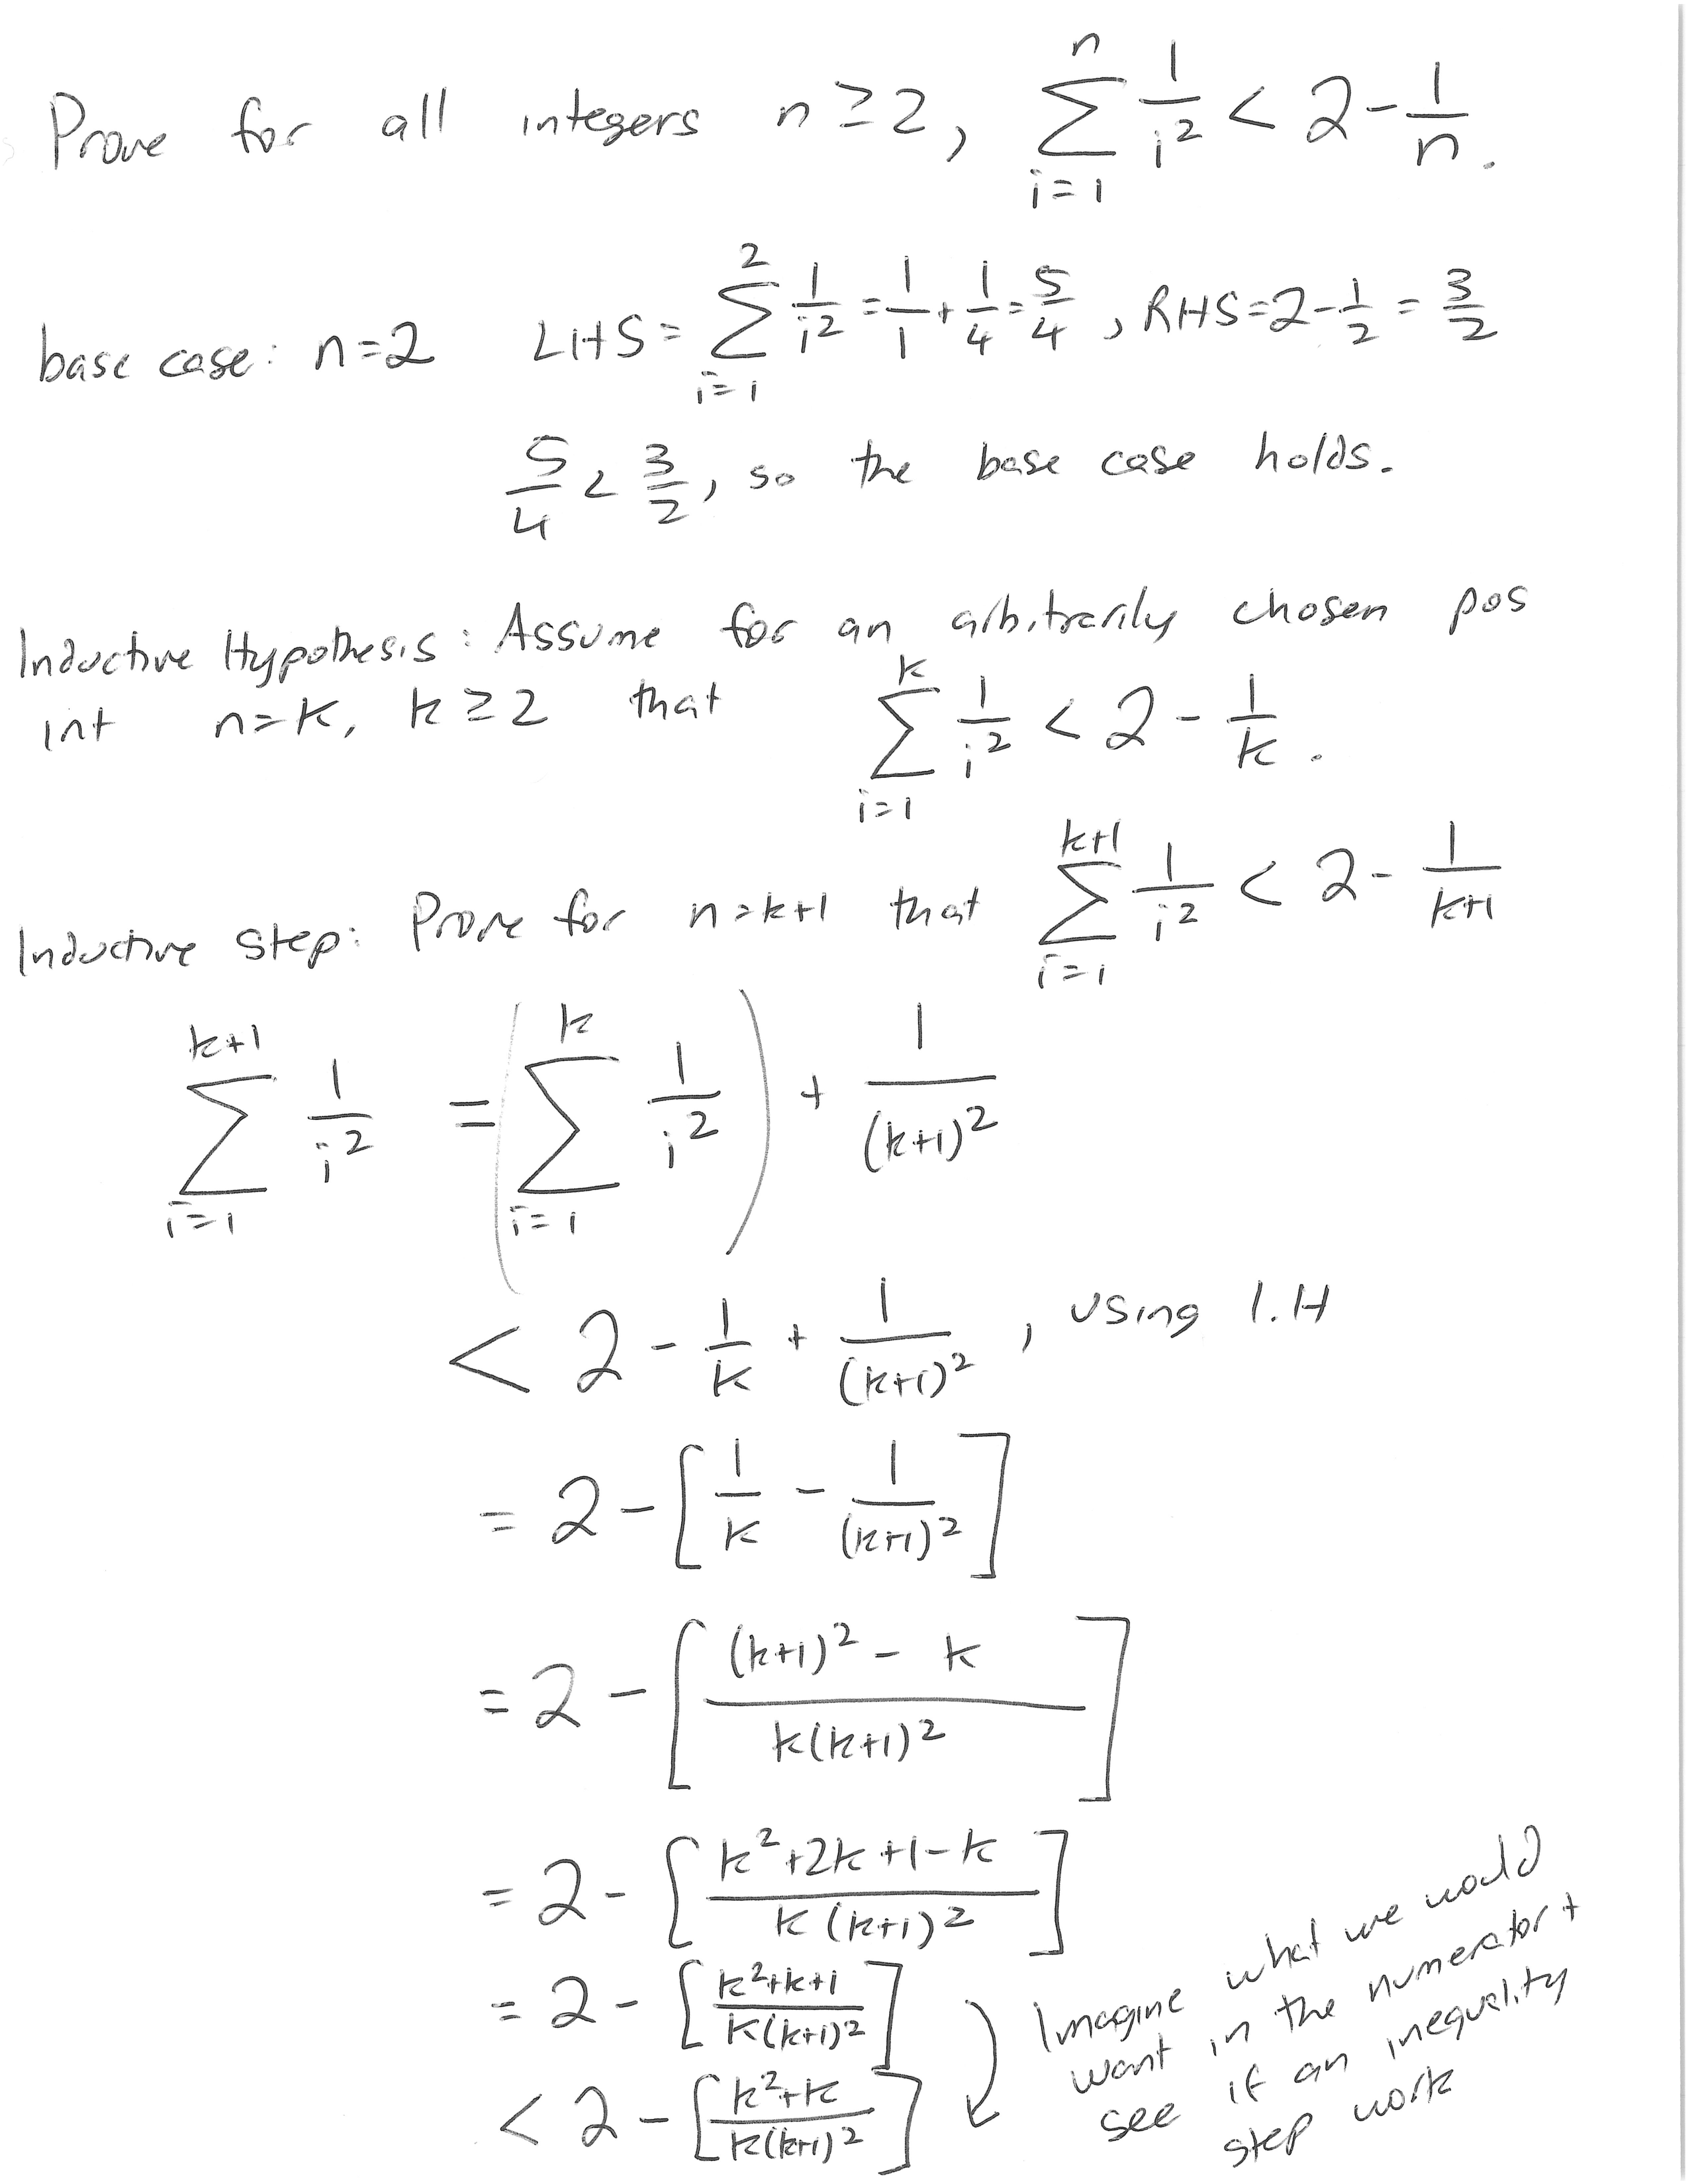 Prove for all integers n ≥ 2, \sum_{i=1}^{n} \frac{1}{i^2} < 2 - \frac{1}{n}.
base case: n=2 LHS = \sum_{i=1}^{2} \frac{1}{i^2} = \frac{1}{1} + \frac{1}{4} = \frac{5}{4}, RHS = 2 - \frac{1}{2} = \frac{3}{2}
\frac{5}{4} < \frac{3}{2}, so the base case holds.
Inductive Hypothesis: Assume for an arbitrarily chosen pos
int n=k, k ≥ 2 that \sum_{i=1}^{k} \frac{1}{i^2} < 2 - \frac{1}{k}.
Inductive step: Prove for n=k+1 that \sum_{i=1}^{k+1} \frac{1}{i^2} < 2 - \frac{1}{k+1}
\sum_{i=1}^{k+1} \frac{1}{i^2} = \left( \sum_{i=1}^{k} \frac{1}{i^2} \right) + \frac{1}{(k+1)^2}
< 2 - \frac{1}{k} + \frac{1}{(k+1)^2}, using I.H
= 2 - \left[ \frac{1}{k} - \frac{1}{(k+1)^2} \right]
= 2 - \left[ \frac{(k+1)^2 - k}{k(k+1)^2} \right]
= 2 - \left[ \frac{k^2+2k+1-k}{k(k+1)^2} \right]
= 2 - \left[ \frac{k^2+k+1}{k(k+1)^2} \right]
< 2 - \left[ \frac{k^2+k}{k(k+1)^2} \right]
Imagine what we would
want in the numerator +
see if an inequality
step work